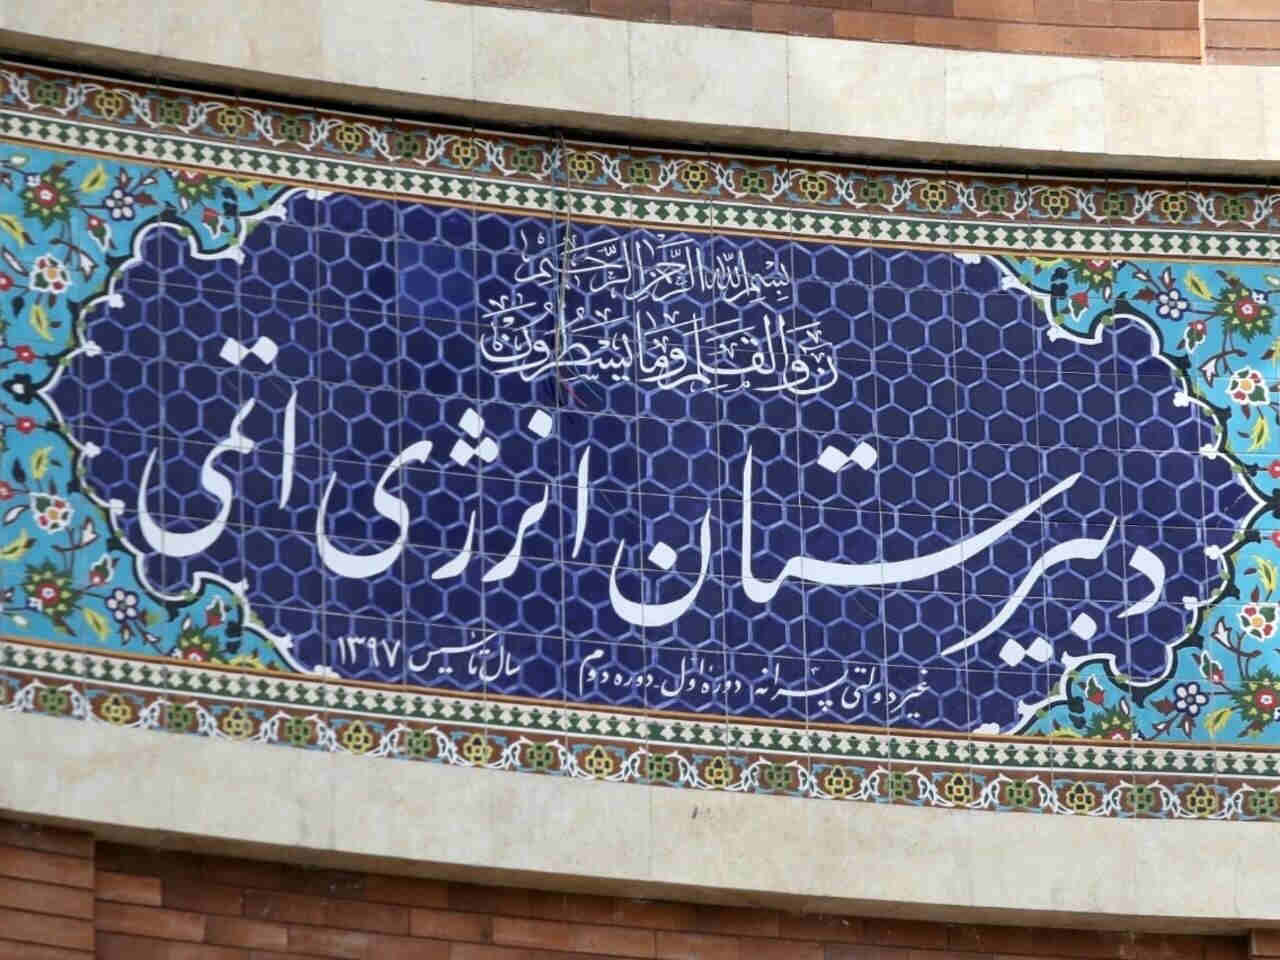 بِسْمِ اللهِ الرَّحْمنِ الرَّحیمِ
نَ وَالْقَلَمِ وَمَا یَسْطُرُونَ
دبیرستان انرژی اتمی
غیردولتی پسرانه دوره اول_دوره دوم سال تأسیس ۱۳۹۷